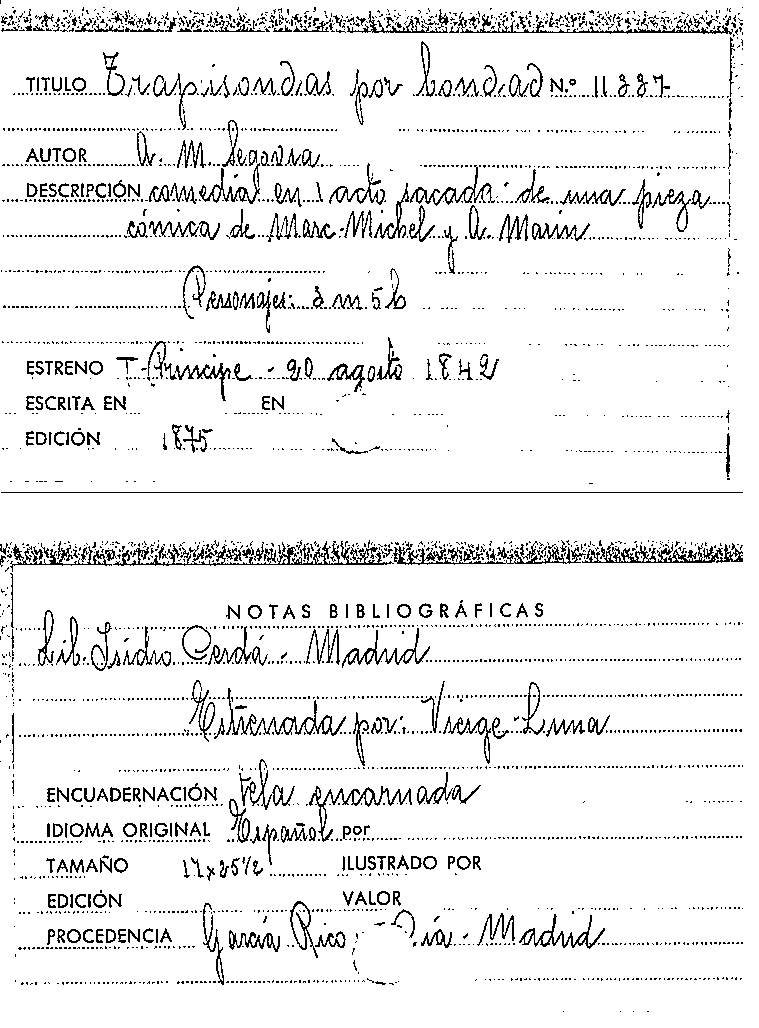 TITULO Trapisondas por bondad N.º 11337
AUTOR A. M. Segovia
DESCRIPCIÓN comedia en 1 acto sacada de una pieza
cómica de Marc-Michel y A. Marin
Personajes: 3 m 5 h
ESTRENO T. Principe - 20 agosto 1842
ESCRITA EN EN
EDICIÓN 1875
NOTAS BIBLIOGRÁFICAS
Lib. Isidro Cerdá - Madrid
Estrenada por: Vierge-Luna
ENCUADERNACIÓN tela encarnada
IDIOMA ORIGINAL Español por
TAMAÑO 17 x 25 1/2 ILUSTRADO POR
EDICIÓN VALOR
PROCEDENCIA García Rico - Madrid